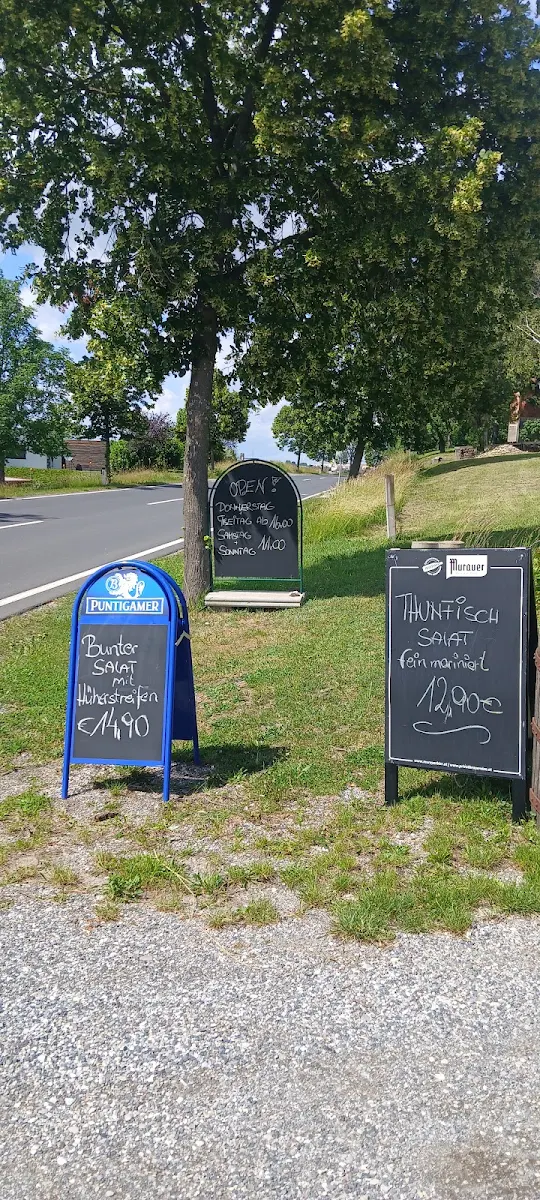 OPEN!
DONNERSTAG
FREITAG AB 16:00
SAMSTAG
SONNTAG 11:00
PUNTIGAMER
Bunter
SALAT
mit
Hühnerstreifen
€14,90
Murauer
THUNFISCH
SALAT
fein mariniert
12,90€